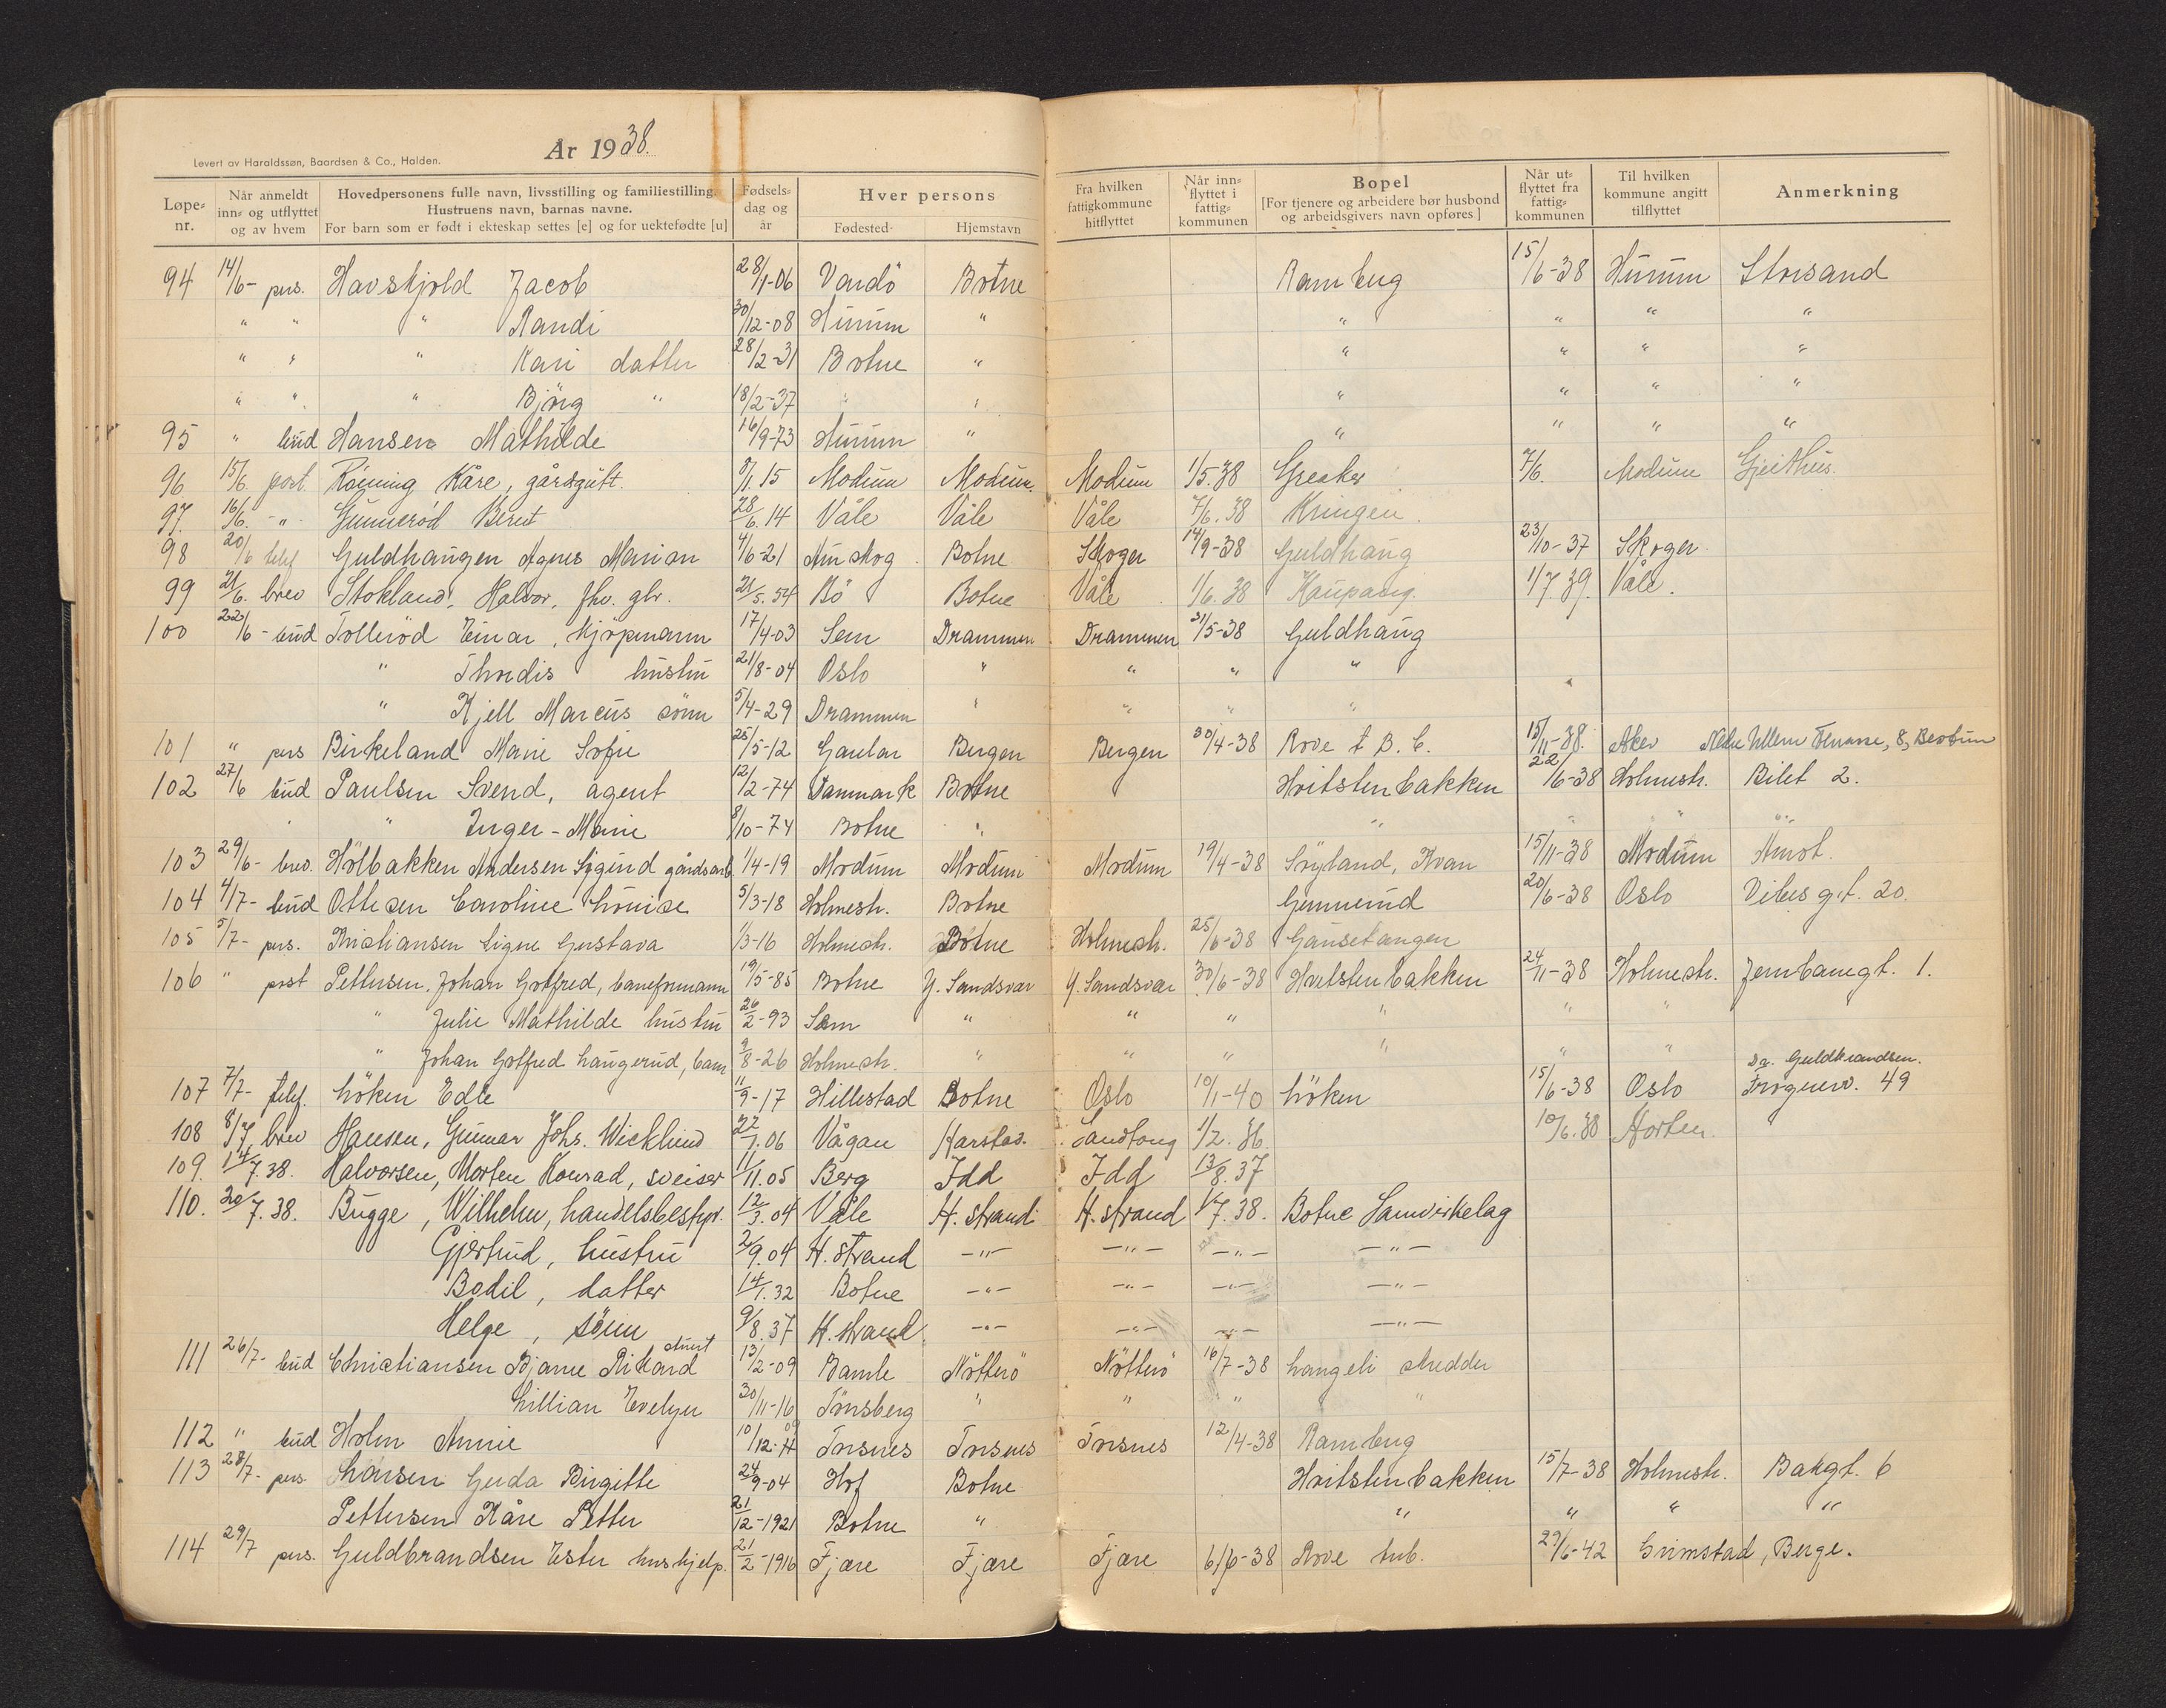 År 1938.
Levert av Haraldssøn, Baardsen & Co., Halden.
Løpe-nr. Når anmeldt inn- og utflyttet og av hvem Hovedpersonens fulle navn, livsstilling og familiestilling. Hustruens navn, barnas navne. For barn som er født i ekteskap settes [e] og for uektefødte [u] Fødsels-dag og år Hver persons Fødested Hjemstavn Fra hvilken fattigkommune hitflyttet Når inn-flyttet i fattig-kommunen Bopel [For tjenere og arbeidere bør husbond og arbeidsgivers navn opføres] Når ut-flyttet fra fattig-kommunen Til hvilken kommune angitt tilflyttet Anmerkning
94 14/6- pers. Havskjold Jacob 28/1-06 Vardö Botne Ramberg 15/6-38 Hurum Storsand
" " " Randi 30/12-08 Hurum " " " " "
" " " Kari datter 28/2-31 Botne " " " " "
" " " Björg " 18/2-37 " " " " " "
95 " bud Hansen Mathilde 16/9-73 Hurum " " " " "
96 15/6. post. Röining Kåre, gårdsgutt. 8/1.15 Modum Modum. Modum 1/5.38 Greaker 7/6. Modum Gjeithus.
97. 16/6. -"- Gunnerød Berit 28/6.14 Våle Våle Våle 7/6.38 Kringen.
98 20/6 telef Guldhaugen Agnes Marion 4/6-21 Aurskog Botne Skoger 14/9-38 Guldhaug 23/10-37 Skoger
99 21/6. brev Stokland, Halvor, fhv. gbr. 21/5.54 Bö Botne Våle 1/6.38 Kaupang. 1/7.39. Våle.
100 22/6- bud Tolleröd Einar, kjöpmann 17/4-03 Sem Drammen Drammen 31/5-38 Guldhaug
" Thordis hustru 21/8-04 Oslo " " " "
" Kjell Marcus sönn 5/4-29 Drammen " " " "
101 " pers Birkeland Marie Sofie 25/5-12 Gaular Bergen Bergen 30/4-38 Rove t. B. C. 15/11-38. Aker Nedre Ullern Terrasse, 8, Bestum
102 27/6 bud Paulsen Svend, agent 12/2-74 Danmark Botne Hvitstenbakken 22/6-38 Holmestr. Bilet 2.
" Inger-Marie 8/10-74 Botne " " " " "
103 29/6- brev. Hölbakken Andersen Sigurd gårdsarb. 1/4-19 Modum Modum Modum 19/4-38 Söyland, Kvan 15/11-38 Modum Åmot.
104 4/7- bud Ottesen Caroline Louise 5/3-18 Holmestr. Botne Gunnerud 20/6-38 Oslo Vibes gt. 20.
105 5/7- pers. Kristiansen Signe Gustava 1/3-16 Holmestr. Botne Holmestr. 25/6-38 Gausetangen
106 " post Pettersen, Johan Gotfred, baneformann 19/5-85 Botne Y. Sandsvær Y. Sandsvær 30/6-38 Hvitstenbakken 24/11-38 Holmestr. Jernbanegt. 1.
" Julie Mathilde hustru 26/2-93 Sem " " " " " "
" Johan Gotfred Haugerud, barn 9/8-26 Holmestr. " " " " " "
107 7/7- telef. Löken Edle 11/9-17 Hillestad Botne Oslo 10/1-40 Löken 15/6-38 Oslo Dr. Guldbrandsen. Frognerv. 49
108 8/7. brev Hansen, Gunnar Johs. Wicklund 22/1.06 Vågan Harstad. Sandtorg 1/2.36 10/6.38 Horten.
109. 14/7.38. Halvorsen, Morten Konrad, sveiser 11/11.05 Berg Idd Idd 13/8.37
110. 20/7.38. Bugge, Wilhelm, handelsbestyr. 12/3.04 Våle H. strand H. strand 1/7.38. Botne Samvirkelag
Gjertrud, hustru 2/9.04 H. strand -"- -"- -"- -"-
Bodil, datter 14/1.32 Botne -"- -"- -"- -"-
Helge, sönn 9/8.37 H. strand. -"- -"- -"- -"-
111 26/7- bud Christiansen Bjarne Rikard 13/2-09 Bamle Nötterö Nötterö 16/7-38 Langeli skredder
Lillian Evelyn 30/11-16 Tönsberg " " " "
112 " bud Holm Annie 10/12- 09 Torsnes Torsnes Torsnes 12/4-38 Ramberg
113 28/7- pers Thorsen Gerda Birgitte 24/9-04 Hof Botne Hvitstenbakken 15/7-38 Holmestr. Bakgt. 6
Pettersen Kåre Petter 21/12-1921 Botne " " " " "
114 29/7 pers. Guldbrandsen Ester hushjelp. 21/2-1916 Fjære Fjære Fjære 6/6-38 Rove tub. 29/6-42 Grimstad, Berge.